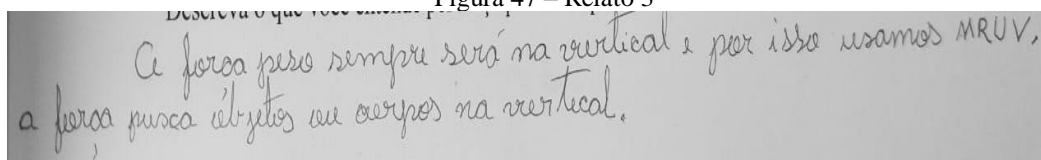 Figura 47 – Relato 3
Descreva o que você entende por
A força peso sempre será na vertical e por isso usamos MRUV,
a força puxa objetos ou corpos na vertical.